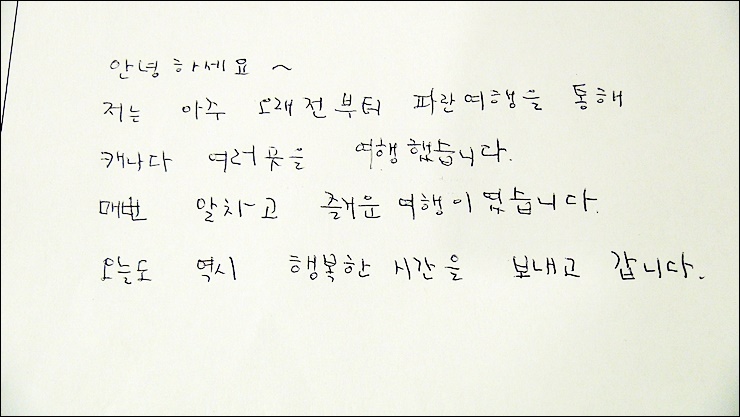 안녕하세요 ~
저는 아주 오래전부터 파란여행을 통해
캐나다 여러곳을 여행했습니다.
매번 알차고 즐거운 여행이였습니다.
오늘도 역시 행복한 시간을 보내고 갑니다.